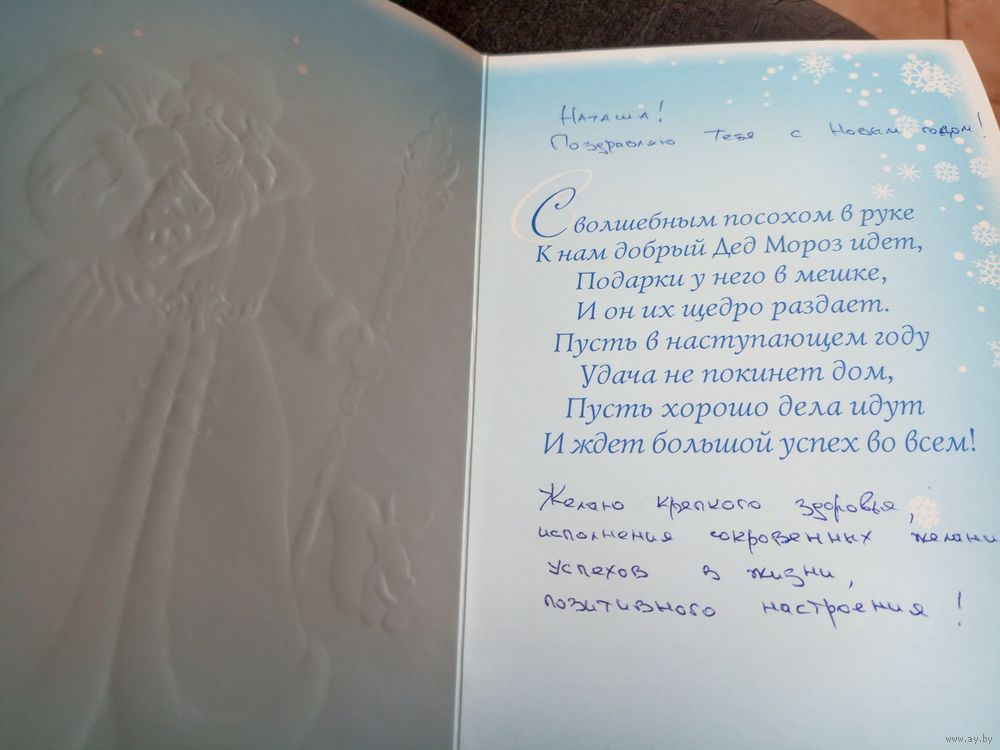 Наташа!
Поздравляю тебя с Новым годом!
С волшебным посохом в руке
К нам добрый Дед Мороз идет,
Подарки у него в мешке,
И он их щедро раздает.
Пусть в наступающем году
Удача не покинет дом,
Пусть хорошо дела идут
И ждет большой успех во всем!
Желаю крепкого здоровья,
исполнения сокровенных желани
успехов в жизни,
позитивного настроения!
www.ay.by